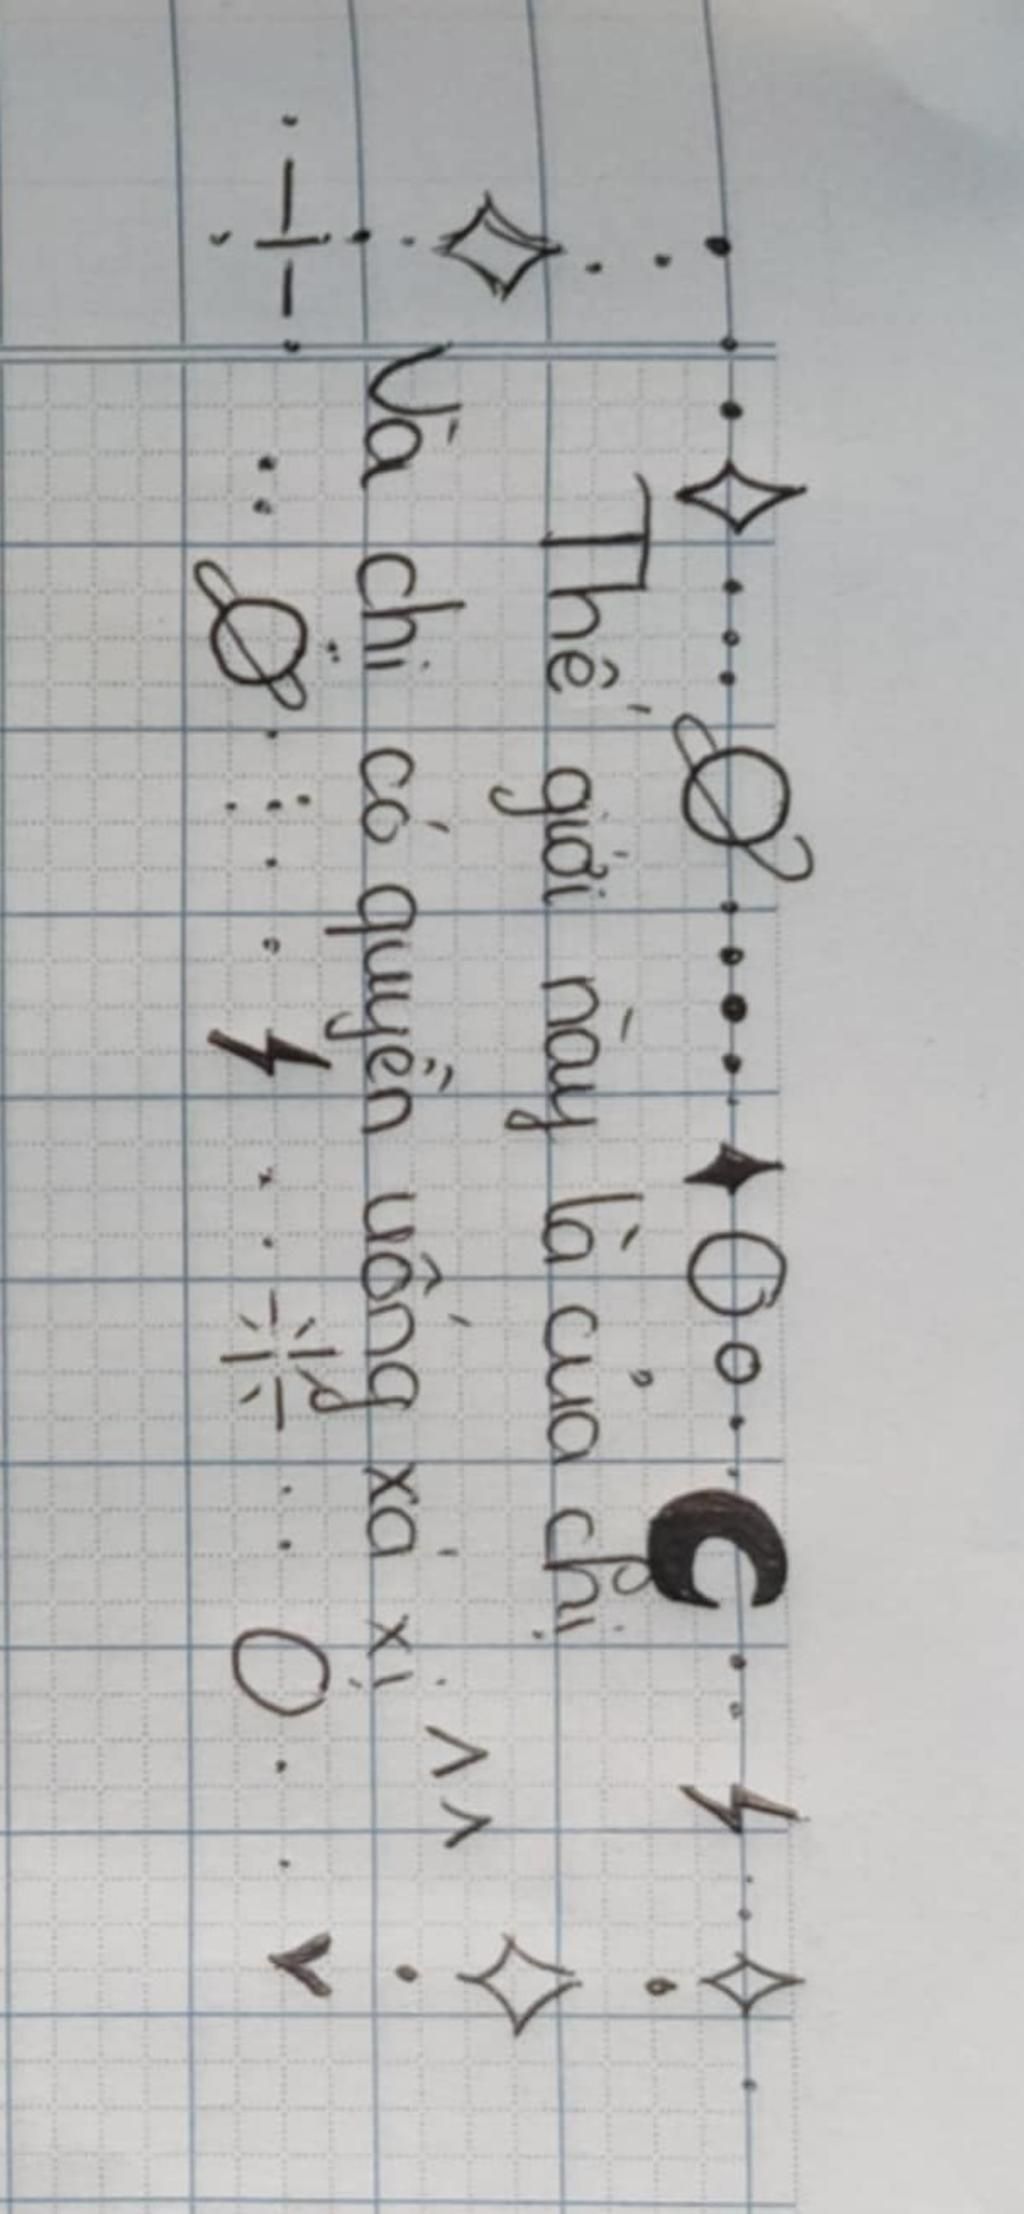 Thế giới này là của chị
Và chị có quyền uống xá xị ^^